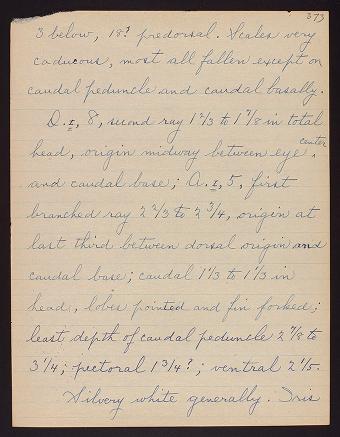 373
3 below, 18? predorsal. Scales very
caducous, most all fallen except on
caudal peduncle and caudal basally.
D. I, 8, second ray 1 2/3 to 1 7/8 in total
head, origin midway between eye center
and caudal base; A. I, 5, first
branched ray 2 2/3 to 2 3/4, origin at
last third between dorsal origin and
caudal base; caudal 1 1/3 to 1 1/3 in
head, lobes pointed and fin forked;
least depth of caudal peduncle 2 7/8 to
3 1/4; pectoral 1 3/4?; ventral 2 1/5.
Silvery white generally. Iris